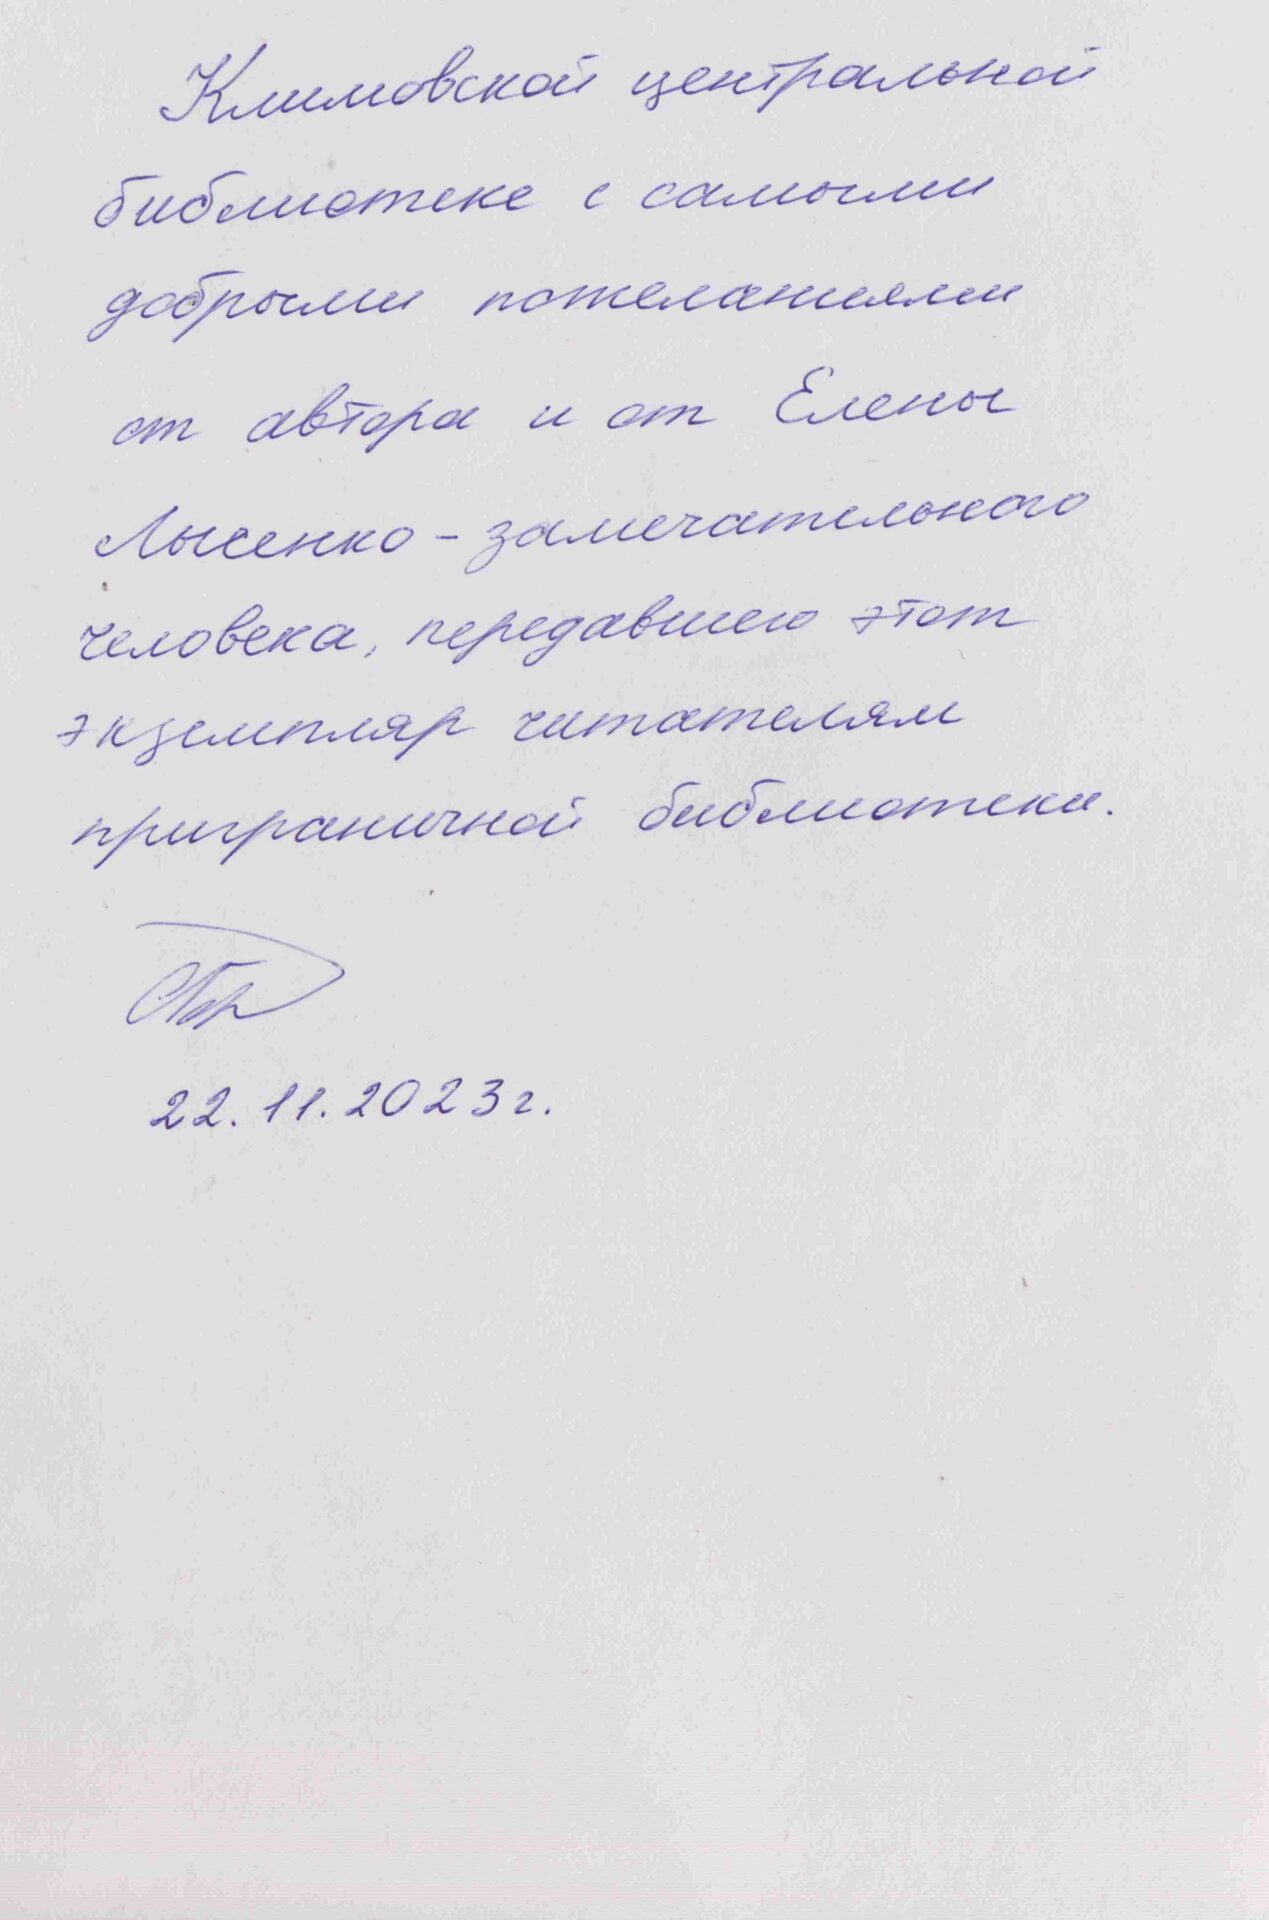 Климовской центральной
библиотеке с самыми
добрыми пожеланиями
от автора и от Елены
Лысенко - замечательного
человека, передавшего этот
экземпляр читателям
приграничной библиотеки.
22.11.2023г.